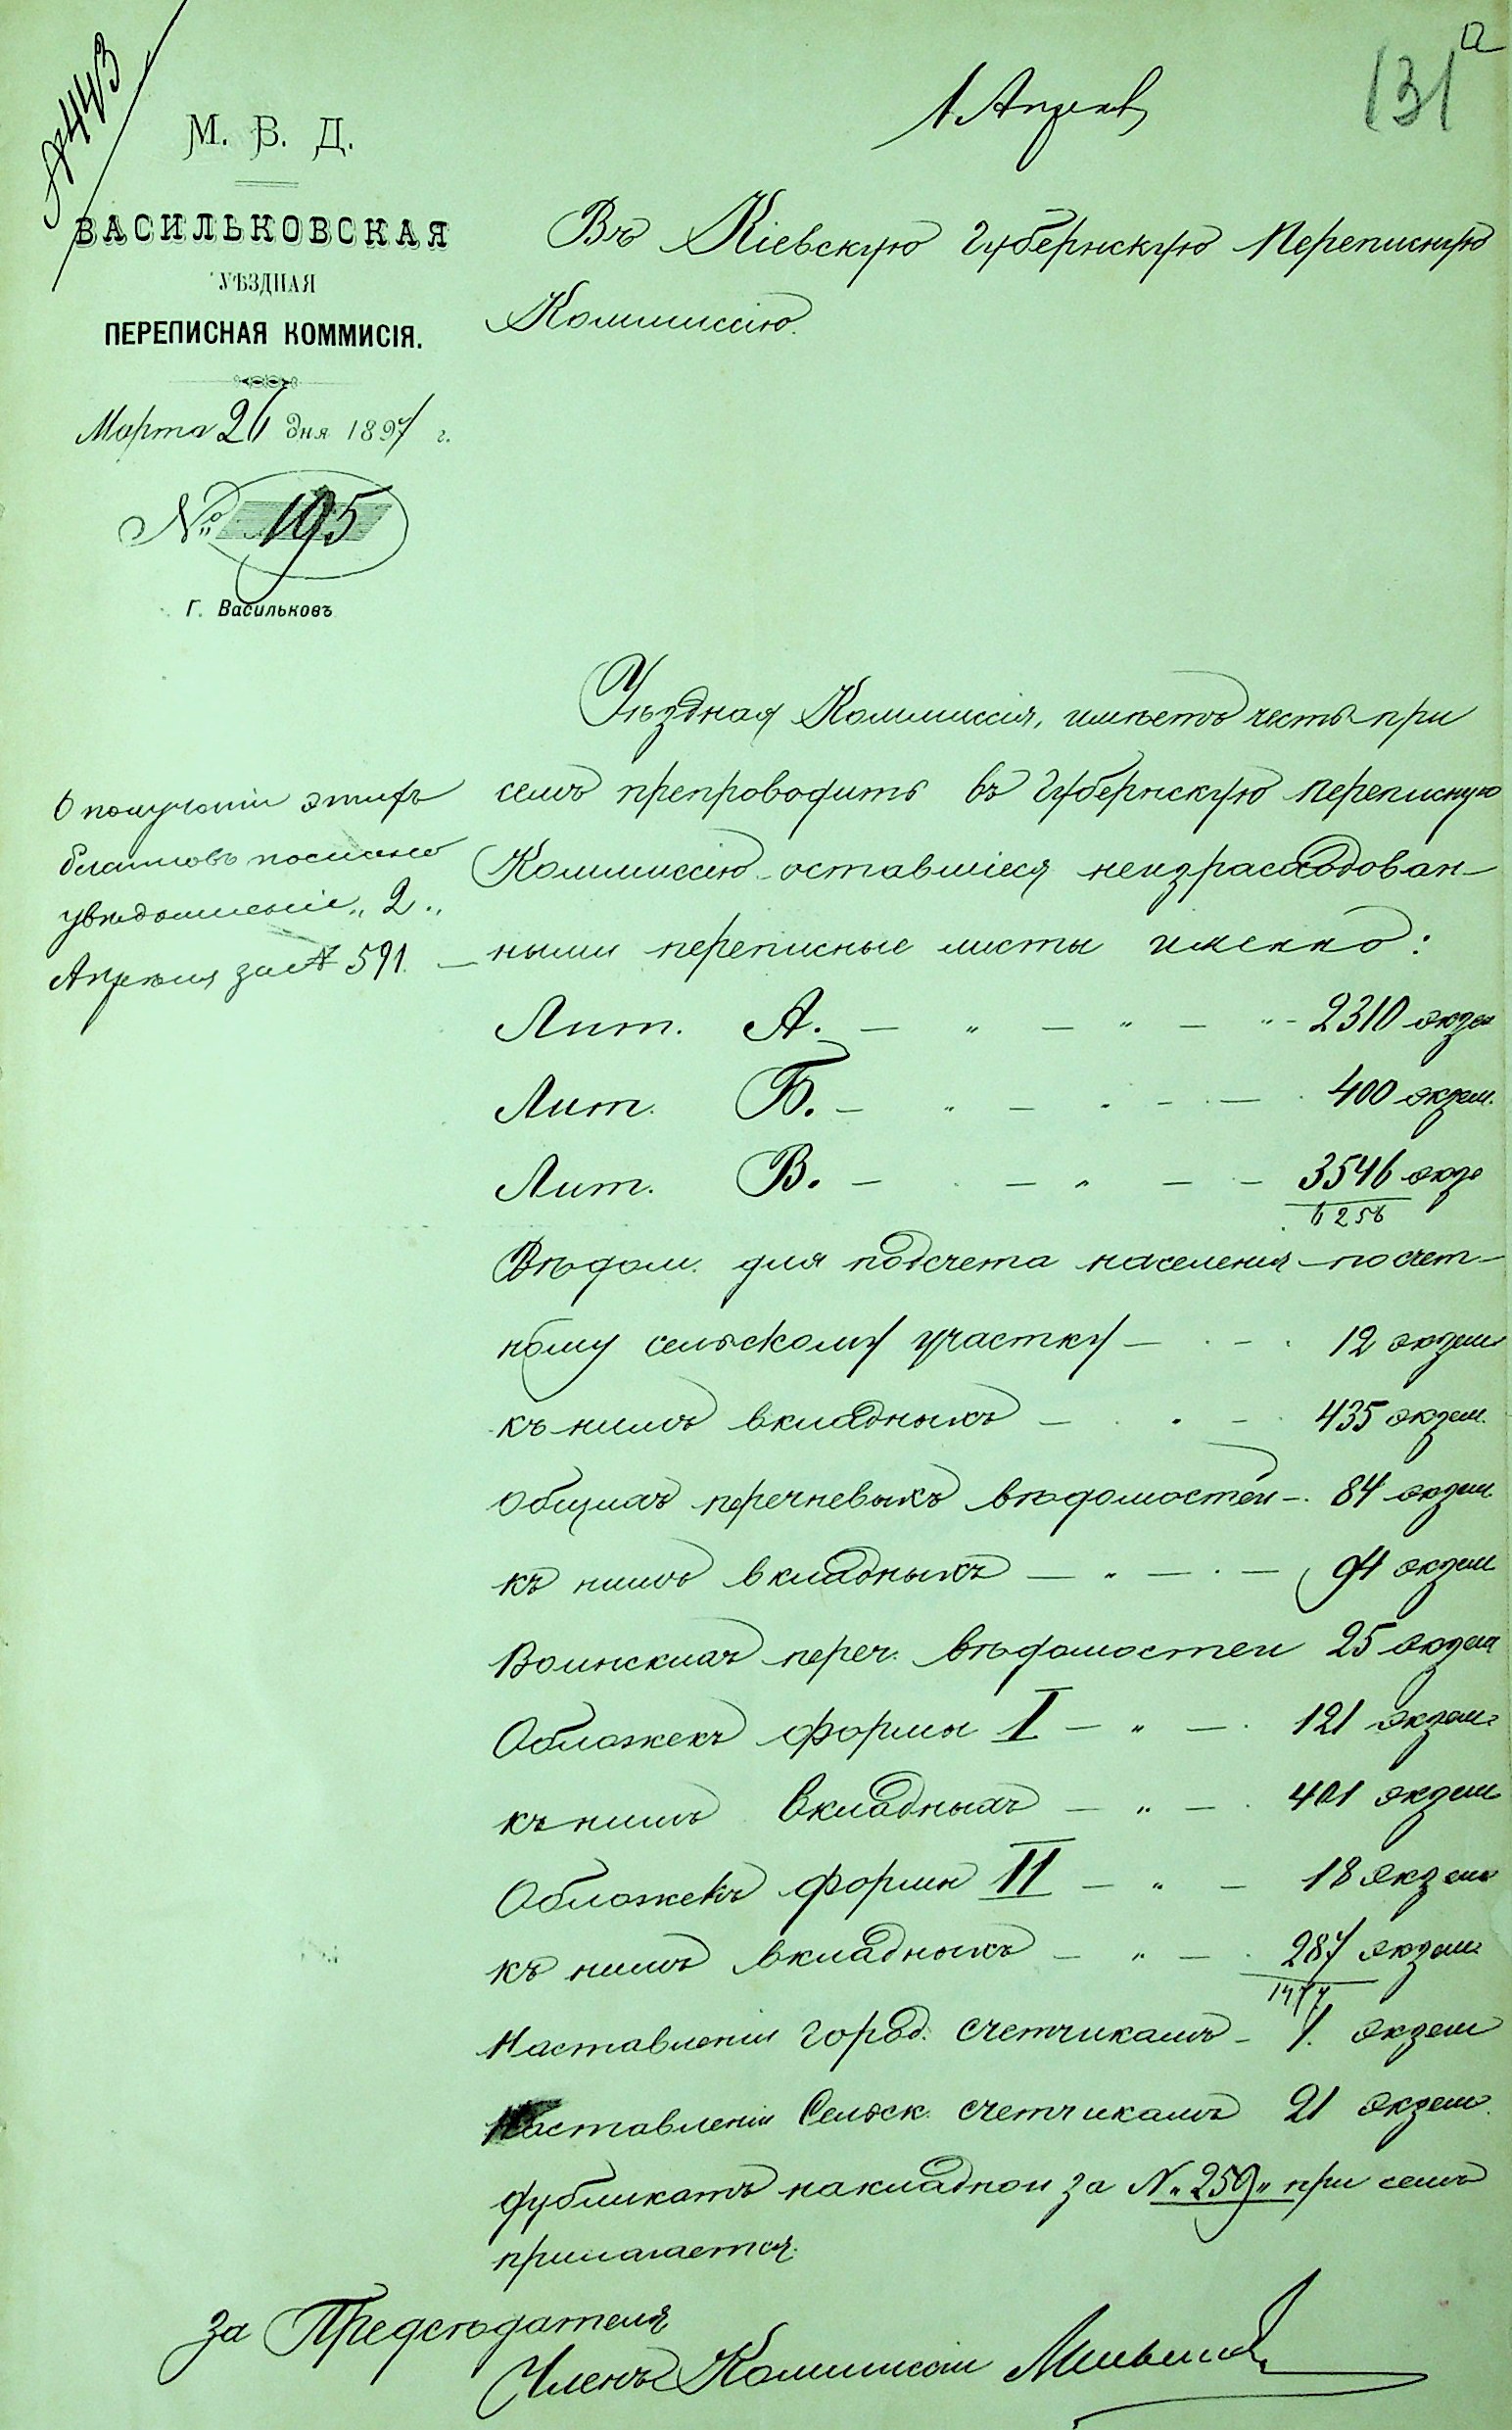 № 443
131 а
1 Апрел
М. В. Д.
ВАСИЛЬКОВСКАЯ
УѢЗДНАЯ
ПЕРЕПИСНАЯ КОММИСІЯ.
Марта 26 дня 1897 г.
№ 195
Г. Васильковъ
Въ Кіевскую Губернскую Переписную
Коммиссію.
Уѣздная Коммиссія, имѣетъ честь при
семъ препроводить въ Губернскую переписную
Коммиссію оставшіеся неизрасходован-
ными переписные листы именно:
О полученіи этихъ
бланковъ послано
увѣдомленіе „2„
Апрѣля за № 591.
Лит. А. — „ — „ — „ - 2310 экзем
Лит. Б. — „ — „ — — 400 экзем.
Лит. В. — — „ — — 3546 экзе
6256
Вѣдом. для подсчета населенія по счет-
ному сельскому участку — - 12 экзем
къ нимъ вкладныхъ — - 435 экзем.
Общихъ перечневыхъ вѣдомостей — 84 экзем.
къ нимъ вкладныхъ — „ — — 94 экзем
Воинскихъ переч. вѣдомостей 25 экзем
Обложекъ формы I — „ — 121 экзем.
къ нимъ вкладныхъ — „ — 401 экзем
Обложекъ формы II — „ — 18 экзем
къ нимъ вкладныхъ — „ — 287 экзем.
1477
Наставленія город. счетчикамъ — 1. экзем
Наставленія Сельск. счетчикамъ 21 экзем.
Дубликатъ накладной за №„259„ при семъ
прилагается.
за Предсѣдателя
Членъ Коммиссіи